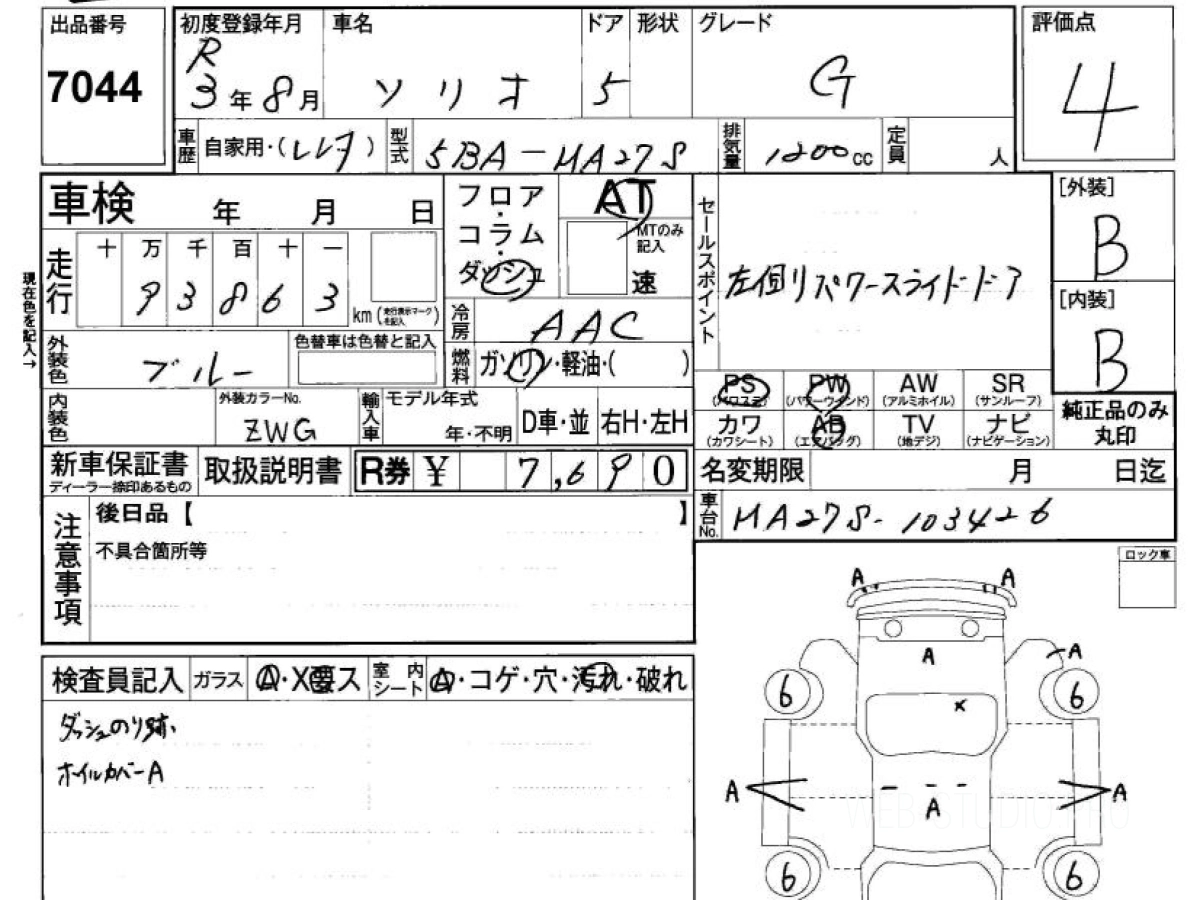 出品番号
7044
初度登録年月
R
3年8月
車名
ソリオ
ドア
5
形状
グレード
G
評価点
4
車歴
自家用・(レンタ)
型式
5BA-MA27S
排気量
1200cc
定員
人
車検
年 月 日
現在色を記入→
走行
十 万 千 百 十 一
93863
km (走行表示マークを記入)
フロア・コラム・ダッシュ
AT
MTのみ記入
速
冷房
AAC
燃料
ガソリン・軽油・( )
外装色
ブルー
色替車は色替と記入
内装色
外装カラーNo.
ZWG
輸入車
モデル年式
年・不明
D車・並
右H・左H
セールスポイント
左側リパワースライドドア
[外装]
B
[内装]
B
PS
(パワステ)
PW
(パワーウインド)
AW
(アルミホイル)
SR
(サンルーフ)
カワ
(カワシート)
AB
(エアバッグ)
TV
(地デジ)
ナビ
(ナビゲーション)
純正品のみ
丸印
新車保証書
ディーラー捺印あるもの
取扱説明書
R券 ¥ 7,690
名変期限 月 日迄
車台No.
MA27S-103426
注意事項
後日品【 】
不具合箇所等
ロック車
検査員記入
ガラス
A・X要ス
室内シート
A・コゲ・穴・汚れ・破れ
ダッシュのり跡、
ホイルカバーA
A A
A A
6 6
×
A A
A
6 6
WEB STUDIO PRO